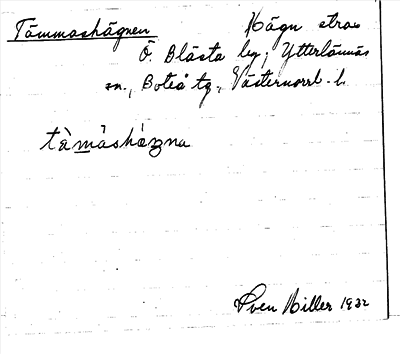 Tåmmashägnen Hägn strax
Ö. Blästa by, Ytterlännäs
sn., Boteå tg, Västernorrl. l.
tàmåshǻgna
Sven Hiller 1932